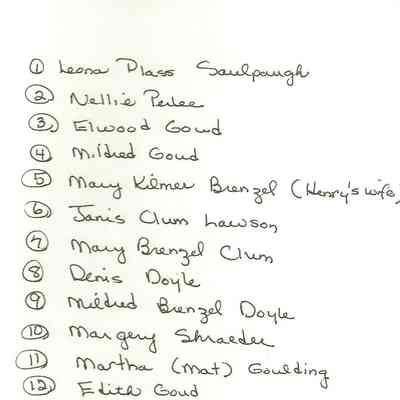 ① Leona Plass Saulpaugh
② Nellie Perlee
③ Elwood Goud
④ Mildred Goud
⑤ Mary Kilmer Brenzel (Henry's wife)
⑥ Janis Clum Lawson
⑦ Mary Brenzel Clum
⑧ Denis Doyle
⑨ Mildred Brenzel Doyle
⑩ Margery Shraeder
⑪ Martha (Mat) Goulding
⑫ Edith Goud